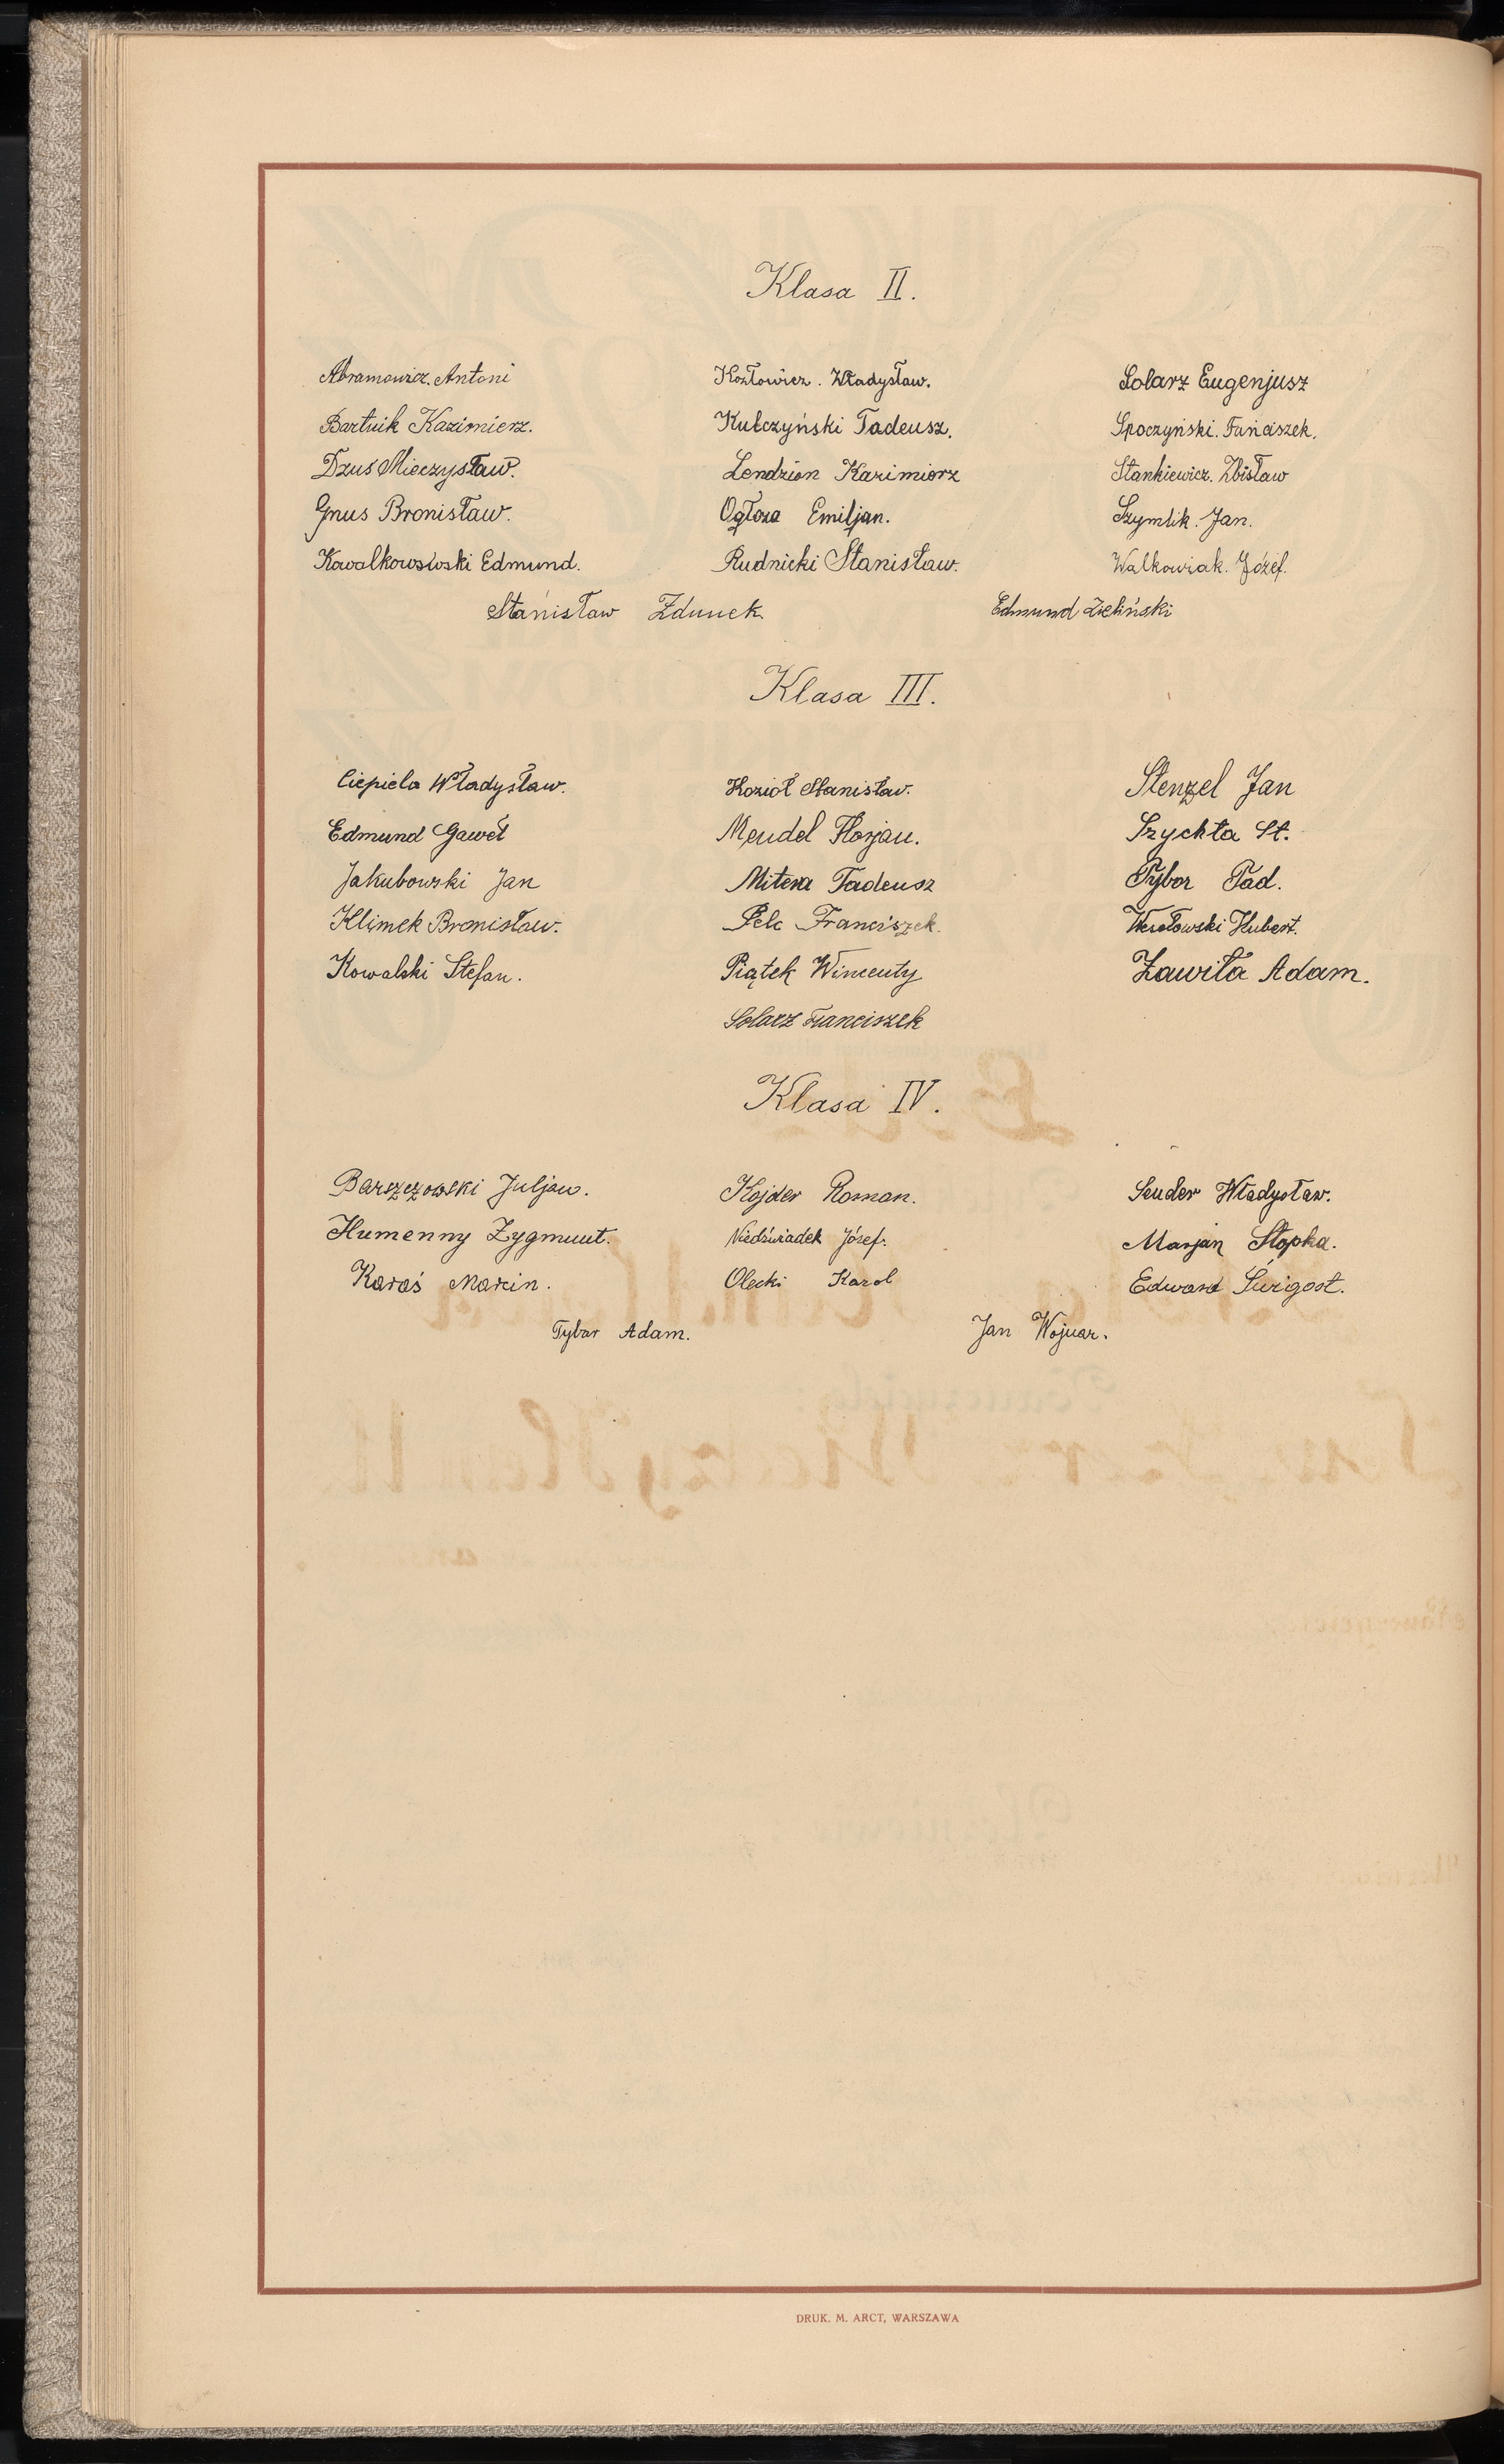 Klasa II.
Abramowicz. Antoni
Bartnik Kazimierz.
Dzuś Mieczysław.
Gnus Bronisław.
Kawalkowswski Edmund.
Kozłowicz. Władysław.
Kulczyński Tadeusz.
Lendzion Kazimierz
Ogłoza Emiljan.
Rudnicki Stanisław.
Solarz Eugenjusz
Spoczyński. Fańciszek.
Stankiewicz. Zbisław
Szymlik. Jan.
Walkowiak. Józef.
Stanisław Zdunek.
Edmund Zieliński
Klasa III.
Ciepiela Władysław.
Edmund Gaweł
Jakubowski Jan
Klimek Bronisław.
Kowalski Stefan.
Kozioł Stanisław.
Mendel Florjan.
Mitera Tadeusz
Pelc Franciszek.
Piątek Wincenty
Solarz Franciszek
Stenzel Jan
Szychta St.
Tybor Tad.
Hubert.
Zawiła Adam.
Klasa IV.
Barszczowski Juljan.
Humenny Zygmunt.
Karaś Marcin.
Kojder Roman.
Niedźwiadek Józef.
Olecki Karol
Sender Władysław.
Marjan Stopka.
Edward Świgost.
Tybor Adam.
Jan Wojnar.
DRUK. M. ARCT, WARSZAWA